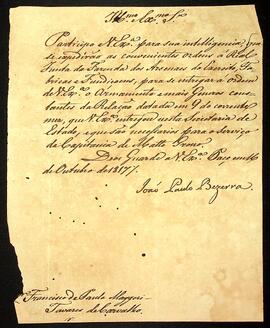 Illmo. Exmo. Snr.
Participo a V. Exa. para sua intelligencia, que
se expedirão as convenientes ordens á Real
Junta da Fazenda dos Arsenaes do Exercito, Fa-
bricas e Fundiçoens, para se entregar á ordem
de V. Exa. o Armamento e mais Generos cons-
tantes da Relação datada em 9 do corrente
mez, que V. Exa. entregou nesta Secretaria de
Estado, e que são necessarios para o serviço
da Capitania de Matto Grosso.
Deos Guarde a V. Exa. Paço em 16
de Outubro de 1817.
João Paulo Bezerra
Francisco de Paula Maggessi
Tavares de Carvalho.